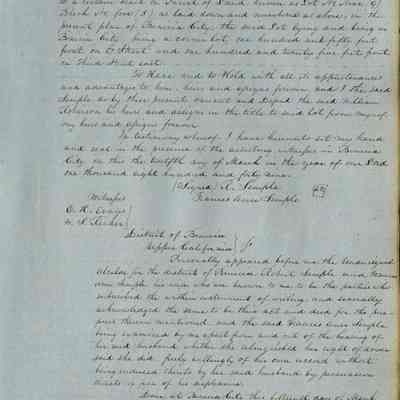 to a certain tract or Parcel of Land, known as Lot No. Nine (9)
Block No. four (4) as laid down and numbered as above, in the
private plan of Benicia City, the said Lot lying and being in
Benicia City being a corner lot, one hundred and fifty feet
front on D Street and one hundred and twenty five feet front
on Third Street east.
To Have and to Hold with all its appurtenances
and advantages to him, heirs and assigns forever, and I the said
Semple do by these presents warrant and Defend the said William
his heirs and assigns in the title to said lot from myself
my heirs and assigns forever
In testimony whereof I have hereunto set my hand
and seal in the presence of the attesting witness in Benicia
City on this the twelfth day of March in the year of our Lord
one thousand eight hundred and forty nine.
(Signed) R. Semple
Witness Frances Ann Semple
District of Benicia
Upper California
Personally appeared before me the Undersigned
Alcalde for the district of Benicia Robert Semple and Frances
Ann Semple his wife who are known to me to be the parties who
subscribed the within instrument of writing and severally
acknowledged the same to be their act and deed for the pur-
pose therein mentioned and the said Frances Ann Semple
being examined by me apart from and out of the hearing of
her said husband whether she relinquished her right of dower
said she did freely willingly of her own accord without
being induced thereto by her said husband by persuasion
threats or fear of his displeasure.
Done at Benicia City this day of March